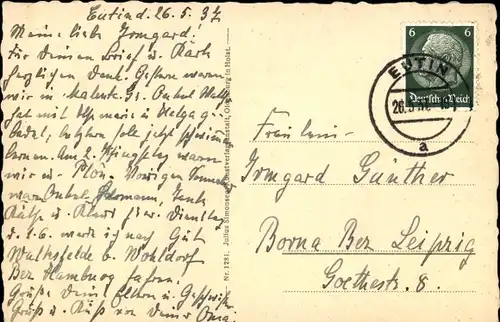 Eutin d. 26.5.37
Meine liebe Irmgard!
Für Deinen Brief u. Karte
herzlichen Dank. Gestern waren
wir in Malente. Gr. Onkel
hat mit Uhr marie u Helga g.
badet, letztere soll jetzt schwimm
lernen. Am 2. Pfingsttag waren
wir in Plön. Vorigen
war Onkel Hermann, Tante
Käthe u. Klaus hier Dienstag
d. 1.6. werde ich nach Gut
Wulksfelde b. Wohldorf
Bez Hamburg fahren.
Grüße Deine Eltern u. Geschwister
Gruß u. Kuß von Deiner Oma.
Nr. 1281. Julius Simonsen, Kunstverlagsanstalt, Oldenburg in Holst.
6 6
Deutsches Reich
EUTIN
26.5.
a
Fräulein
Irmgard Günther
Borna Bez Leipzig
Goethestr. 8.